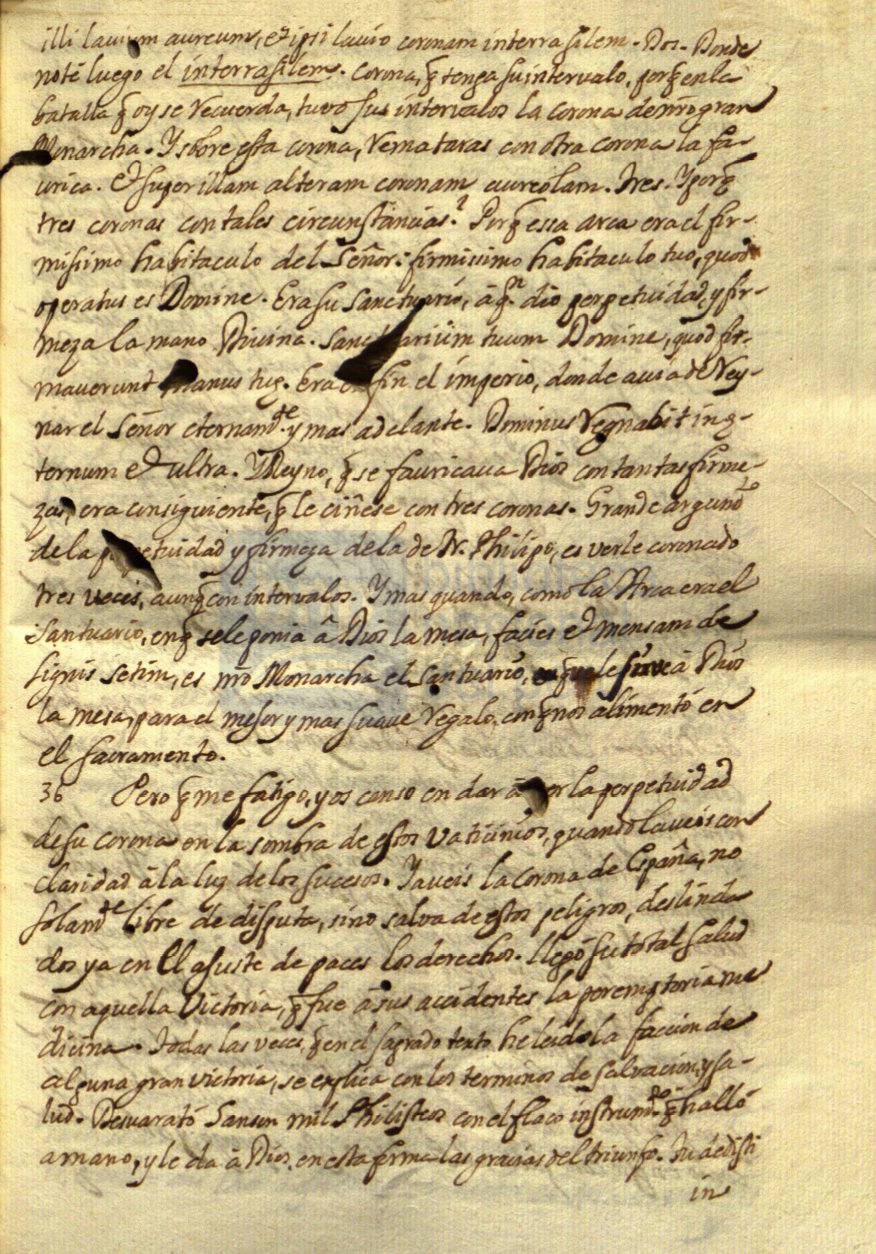 illi lavium aureum, et ipsi lavio coronam interrasilem. Dos. Donde
noté luego el interrasilem. Corona, q̃ tenga su intervalo, porq̃ en la
batalla q̃ oy se recuerda, tuvo sus intervalos la corona de nr̃o gran
Monarcha. Y sobre esta corona, remataras con otra corona la fa-
urica. et super illam alteram coronam aureolam. Tres. Y porq̃
tres coronas con tales circunstancias? Porq̃ essa arca era el fir-
missimo habitaculo del Señor: firmissimo habitaculo tuo, quod
operatus es Domine. Era su Sanctuario, â q.n dio perpetuidad, y fir-
meza la mano Divina. Sanctuarium tuum Domine, quod fir-
maverunt manus tuę. Era en fin el imperio, donde avia de Rey-
nar el Señor eternam.te y mas adelante. Dominus regnabit in ę-
ternum et ultra. Y Reyno, q̃ se fauricava Dios con tantas firme-
zas, era consiguiente, q̃ le ciñese con tres coronas. Grande argum.to
de la perpetuidad y firmeza de la de N. Philipo, es verle coronado
tres veces, aunq̃ con intervalos. Y mas quando, como la Arca era el
Santuario, en q̃ se le ponia â Dios la mesa, facies et mensam de
lignis setim, es nr̃o Monarcha el santuario, en q̃ se le sirve â Dios
la mesa, para el mejor y mas suave regalo, con q̃ nos alimentó en
el sacramento.
36 Pero q̃ me fatigo, y os canso en dar â ver la perpetuidad
de su corona en la sombra de estos vaticinios, quando la veis con
claridad â la luz de los sucesos. Ya veis la corona de España, no
solam.te libre de disputa, sino salva de estos peligros, deslinda
dos ya en el ajuste de paces los derechos. Llegó su total salud
con aquella victoria, q̃ fue â sus accidentes la peremptoria me
dicina. Todas las veces, q̃ en el sagrado texto he leido la faccion de
alguna gran victoria, se explica con los terminos de salvacion, y sa-
lud. Desvarató Sanson mil Philisteos con el flaco instrum.to q̃ halló
a mano, y le da â Dios en esta forma las gracias del triunfo. Tu dedisti
in